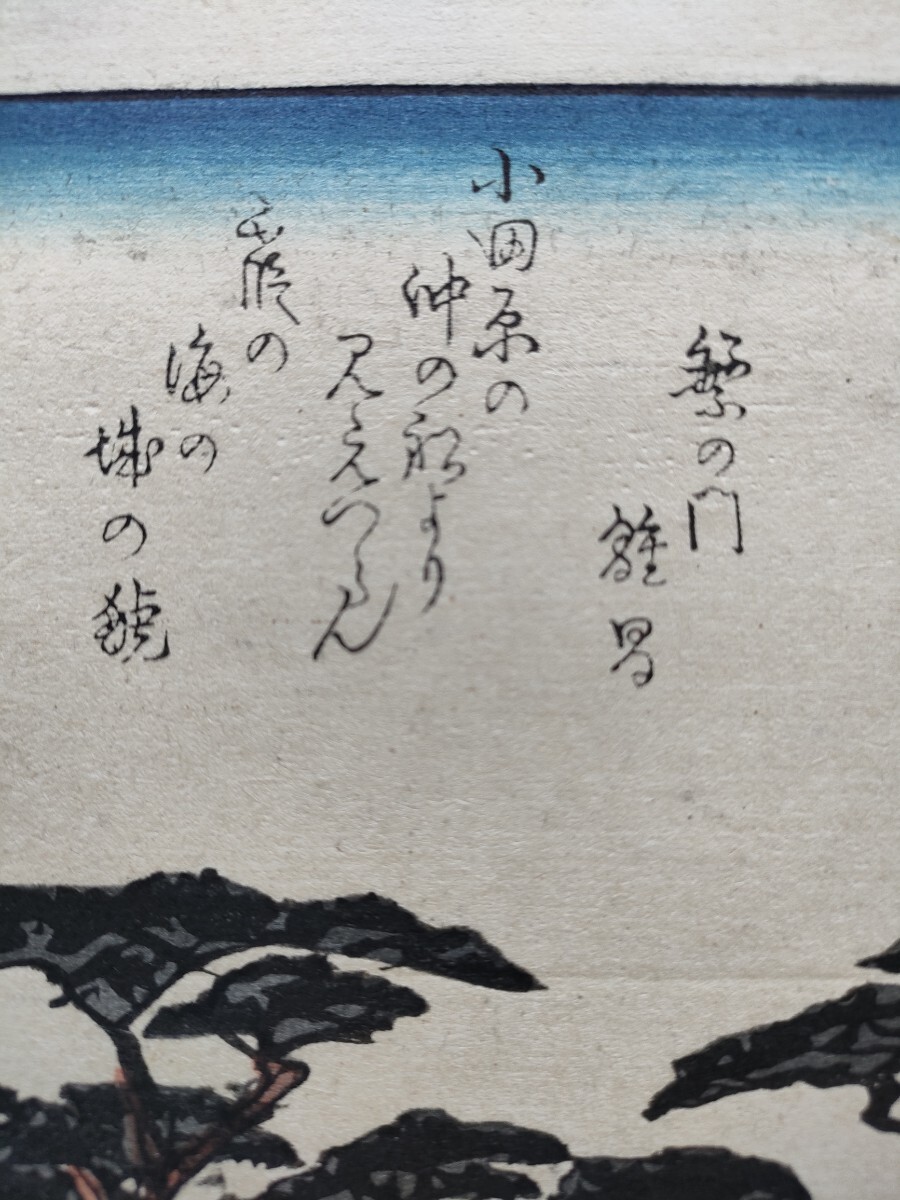 繋の門
雛昌
小田原の
沖の船より
見えつらん
の
海の
城の鯱